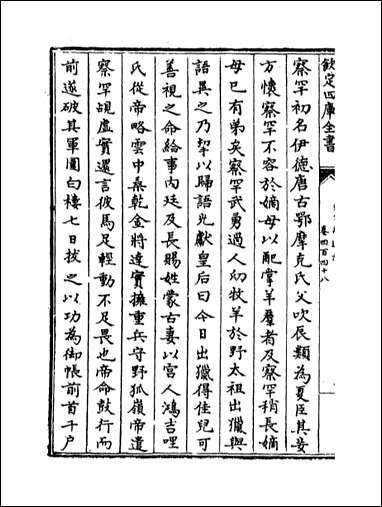 欽定四庫全書
卷四百四十八
察罕初名伊德唐古鄂摩克氏父吹辰類為夏臣其妾
方懷察罕不容於嫡母以配掌羊羣者及察罕稍長嫡
母已有弟矣察罕武勇過人幼牧羊於野太祖出獵與
語異之乃挈以歸語光獻皇后曰今日出獵得佳兒可
善視之命給事内廷及長賜姓蒙古妻以宫人鴻吉哩
氏從帝略雲中桑乾金將達實擁重兵守野狐嶺帝遣
察罕覘虛實還言彼馬足輕動不足畏也帝命鼓行而
前遂破其軍圍白樓七日拔之以功為御帳前首千户